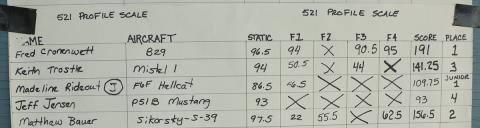 521 PROFILE SCALE 521 PROFILE SCALE
AME AIRCRAFT STATIC F1 F2 F3 F4 SCORE PLACE
Fred Cronenwett B29 96.5 94 X 90.5 95 191 1
Keith Trostle Mistel 1 94 50.5 X 44 X 141.25 3
Madeline Rideout J F6F Hellcat 86.5 X X X 109.75 JUNIOR 1
Jeff Jensen P51B Mustang 93 X X X X 93 4
Matthew Bauer Sikorsky S-39 97.5 22 55.5 X 62.5 156.5 2